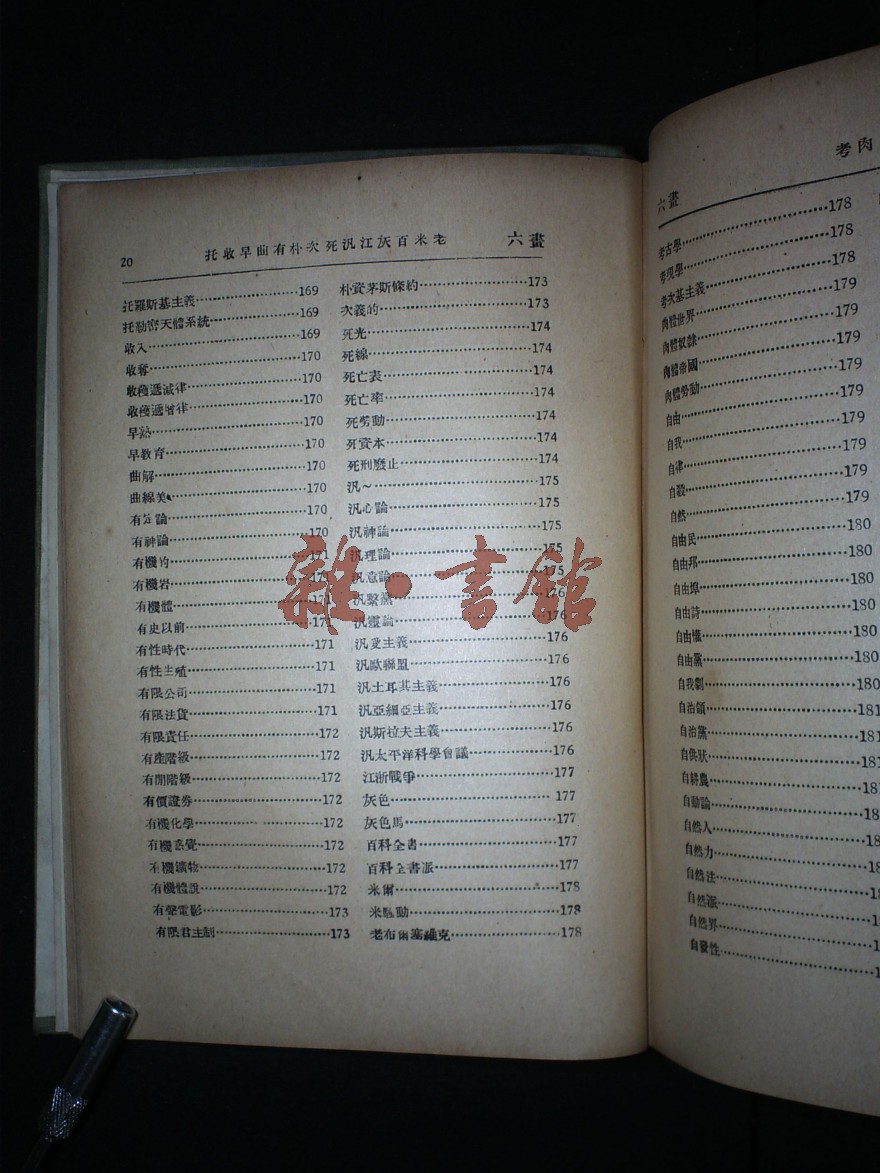 20
托收早曲有朴次死汎江灰百米老
六畫
托羅斯基主義 169
托勒密天體系統 169
收入 169
收奪 170
收穫遞減律 170
收穫遞增律 170
早熟 170
早教育 170
曲解 170
曲線美 170
有定論 170
有神論 170
有機的 171
有機岩 171
有機體 171
有史以前 171
有性時代 171
有性生殖 171
有限公司 171
有限法貨 171
有限責任 172
有產階級 172
有閒階級 172
有價證券 172
有機化學 172
有機感覺 172
有機礦物 172
有機體說 172
有聲電影 173
有限君主制 173
朴資茅斯條約 173
次義的 173
死光 174
死線 174
死亡表 174
死亡率 174
死勞動 174
死資本 174
死刑廢止 174
汎～ 175
汎心論 175
汎神論 175
汎理論 175
汎意論 175
汎繫黨 176
汎靈論 176
汎愛主義 176
汎歐聯盟 176
汎土耳其主義 176
汎亞細亞主義 176
汎斯拉夫主義 176
汎太平洋科學會議 176
江浙戰爭 177
灰色 177
灰色馬 177
百科全書 177
百科全書派 177
米爾 178
米騷動 178
老布爾塞維克 178
雜·書館
考肉
六畫
考古學 178
考現學 178
考次基主義 178
肉體世界 179
肉體奴隸 179
肉體帝國 179
肉體勞動 179
自由 179
自我 179
自律 179
自殺 179
自然 180
自由民 180
自由邦 180
自由埠 180
自由詩 180
自由權 180
自由黨 180
自我劇 180
自治領 181
自治黨 181
自供狀 181
自耕農
自動論
自然人
自然力
自然法
自然派
自然界
自發性